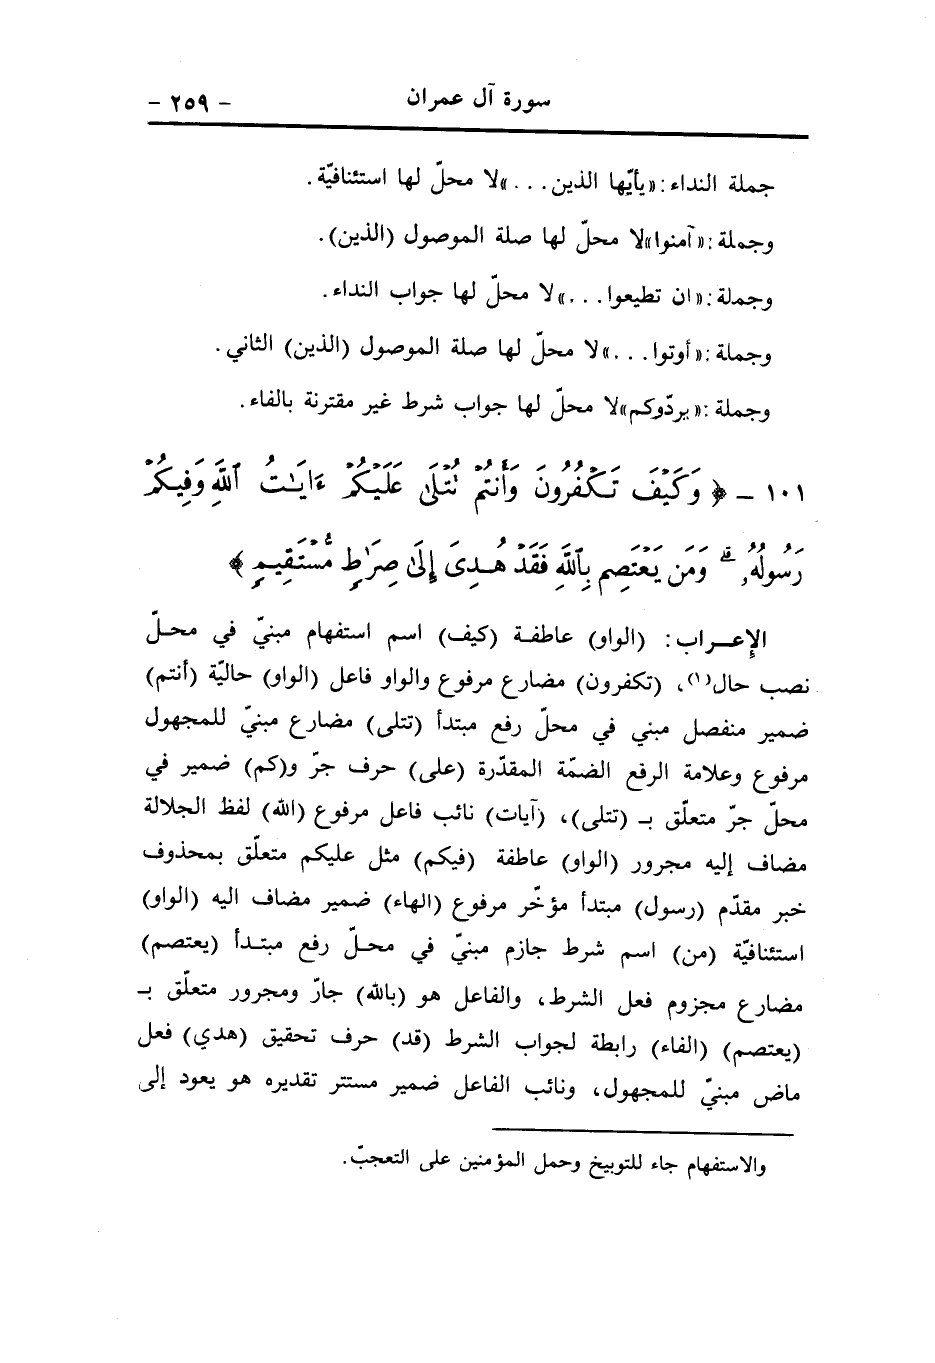 سورة آل عمران - ٢٥٩ -
جملة النداء: «يأيّها الذين...» لا محلّ لها استئنافيّة.
وجملة: «آمنوا» لا محلّ لها صلة الموصول (الذين).
وجملة: «ان تطيعوا...» لا محلّ لها جواب النداء.
وجملة: «أوتوا...» لا محلّ لها صلة الموصول (الذين) الثاني.
وجملة: «يردّوكم» لا محلّ لها جواب شرط غير مقترنة بالفاء.
١٠١ - ﴿ وَكَيْفَ تَكْفُرُونَ وَأَنتُمْ تُتْلَىٰ عَلَيْكُمْ ءَايَـٰتُ ٱللَّهِ وَفِيكُمْ
رَسُولُهُۥ ۗ وَمَن يَعْتَصِم بِٱللَّهِ فَقَدْ هُدِىَ إِلَىٰ صِرَٰطٍ مُّسْتَقِيمٍ ﴾
الإعـراب: (الواو) عاطفـة (كيف) اسم استفهام مبنيّ في محلّ
نصب حال(١)، (تكفرون) مضارع مرفوع والواو فاعل (الواو) حاليّة (أنتم)
ضمير منفصل مبني في محلّ رفع مبتدأ (تتلى) مضارع مبنيّ للمجهول
مرفوع وعلامة الرفع الضمّة المقدّرة (على) حرف جرّ و(كم) ضمير في
محلّ جرّ متعلّق بـ (تتلى)، (آيات) نائب فاعل مرفوع (الله) لفظ الجلالة
مضاف إليه مجرور (الواو) عاطفة (فيكم) مثل عليكم متعلّق بمحذوف
خبر مقدّم (رسول) مبتدأ مؤخّر مرفوع (الهاء) ضمير مضاف اليه (الواو)
استئنافيّة (من) اسم شرط جازم مبنيّ في محلّ رفع مبتـدأ (يعتصم)
مضارع مجزوم فعل الشرط، والفاعل هو (بالله) جارّ ومجرور متعلّق بـ
(يعتصم) (الفاء) رابطة لجواب الشرط (قد) حرف تحقيق (هدي) فعل
ماض مبنيّ للمجهول، ونائب الفاعل ضمير مستتر تقديره هو يعود إلى
والاستفهام جاء للتوبيخ وحمل المؤمنين على التعجبّ.